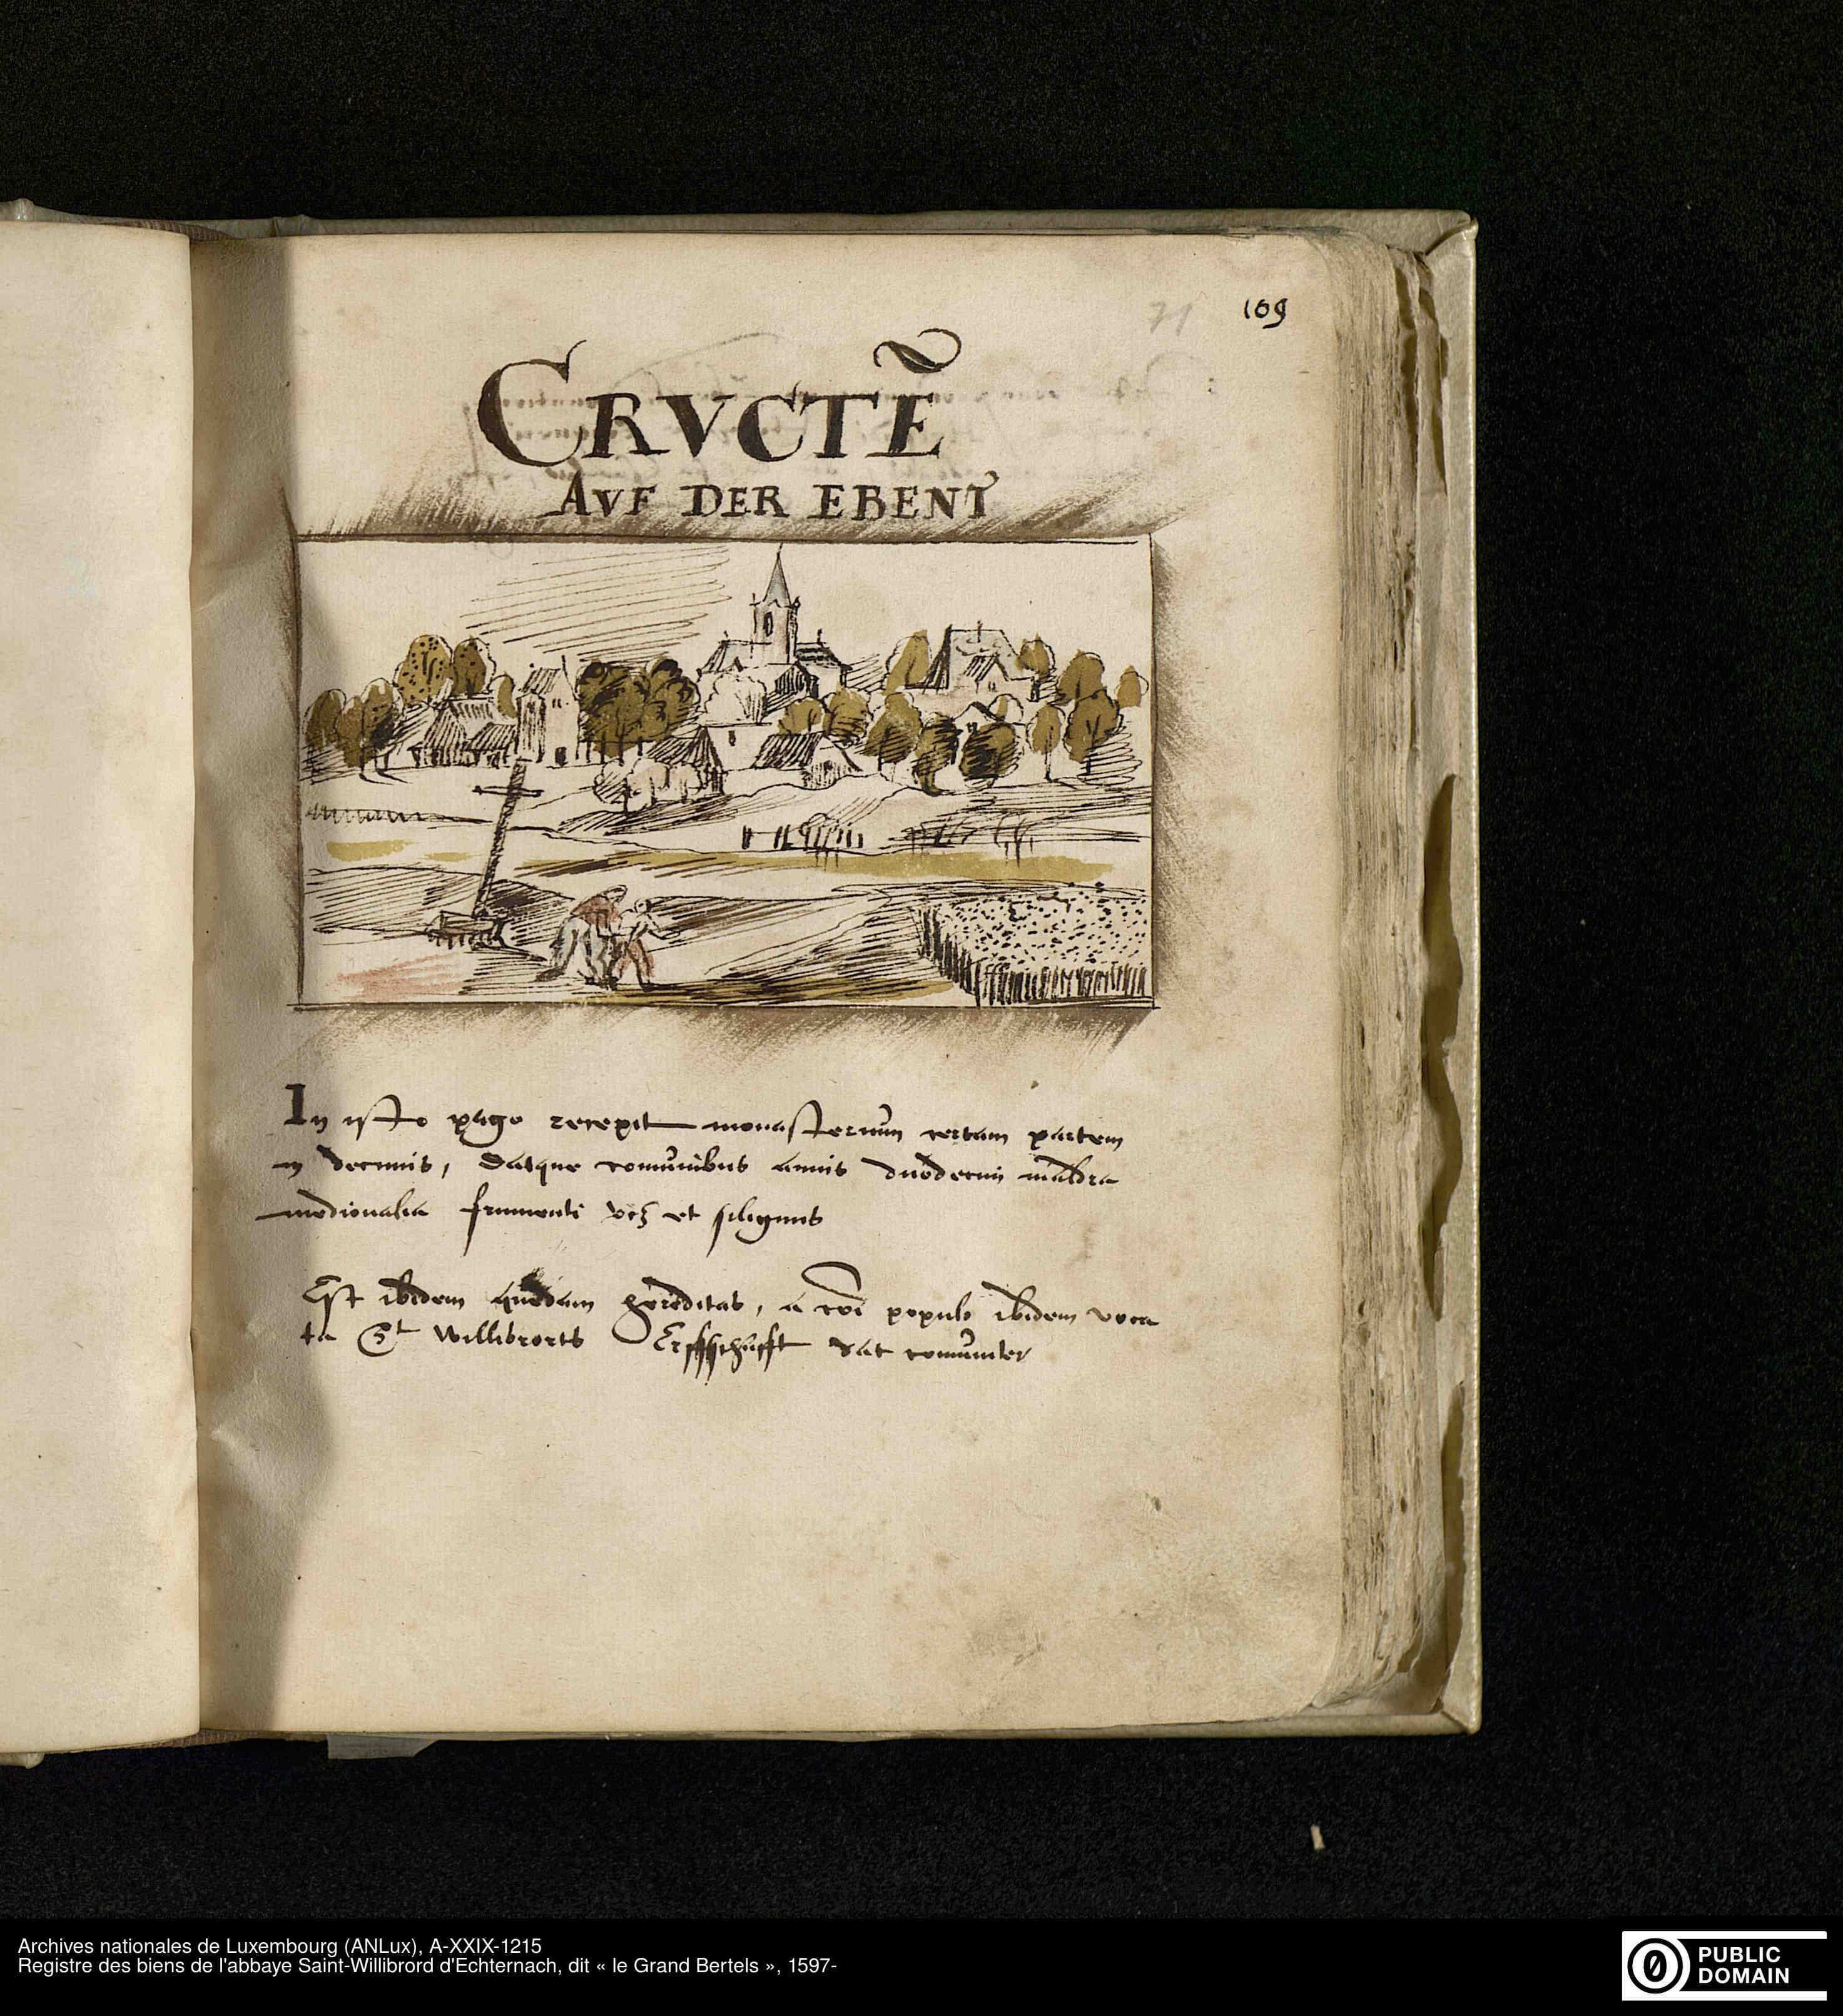 71
109
CRVCTẼ
AVF DER EBENT
In isto pago recepit monasterium certam partem
in decimis, datque comunibus annis duodecim maldra
medionalia frumenti vcz et siliginis
Est ibidem quedam hereditas, a coi populo ibidem voca
ta St Willibrorts Erffschafft dat comuniter
Archives nationales de Luxembourg (ANLux), A-XXIX-1215
Registre des biens de l'abbaye Saint-Willibrord d'Echternach, dit « le Grand Bertels », 1597-
PUBLIC
DOMAIN